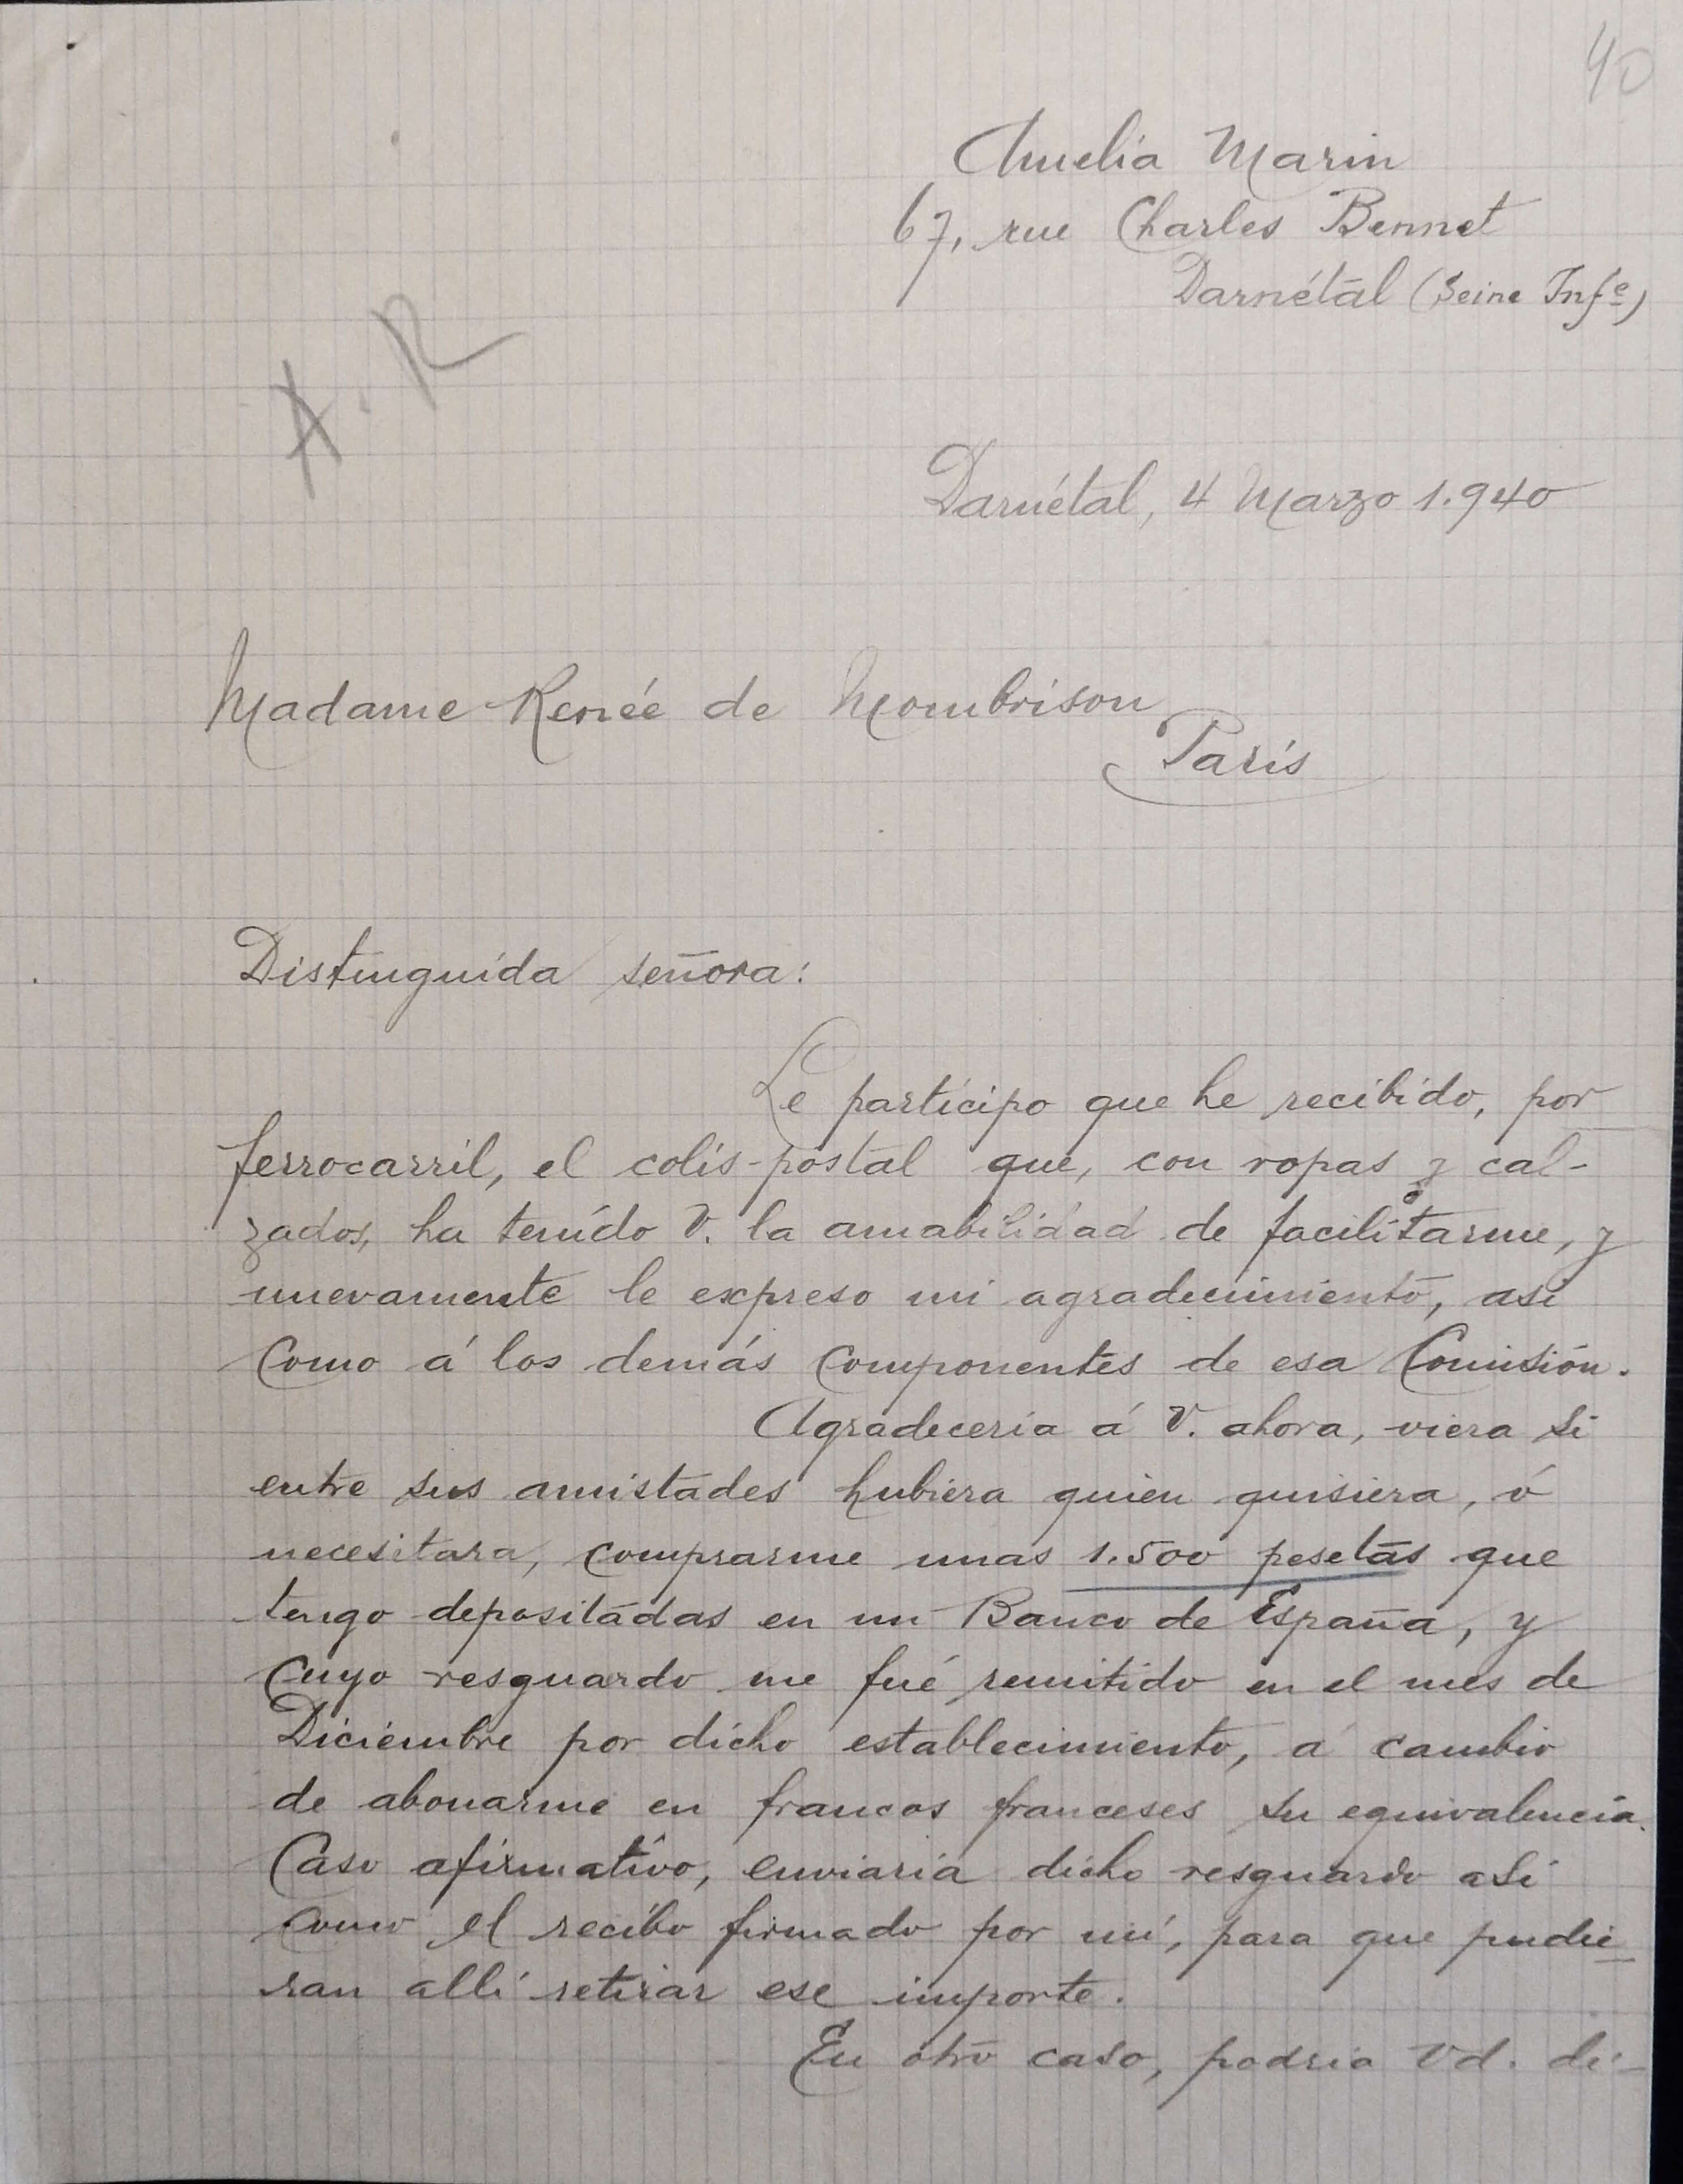 40
Amelia Marin
67, rue Charles Bennet
Darnétal (Seine Infe)
A. R
Darnétal, 4 Marzo 1.940
Madame Renée de Mombrison
París
Distinguida señora:
Le participo que he recibido, por
ferrocarril, el colis-postal que, con ropas y cal-
zados, ha tenido V. la amabilidad de facilitarme, y
nuevamente le expreso mi agradecimiento, asi
como á los demás componentes de esa Comisión.
Agradeceria á V. ahora, viera si
entre sus amistades hubiera quien quisiera, ó
necesitara, comprarme unas 1.500 pesetas que
tengo depositadas en un Banco de España, y
cuyo resguardo me fué remitido en el mes de
Diciembre por dicho establecimiento, á cambio
de abonarme en francos franceses su equivalencia.
Caso afirmativo, enviaria dicho resguardo asi
como el recibo firmado por mí, para que pudie-
ran allí retirar ese importe.
En otro caso, podria Vd. di-